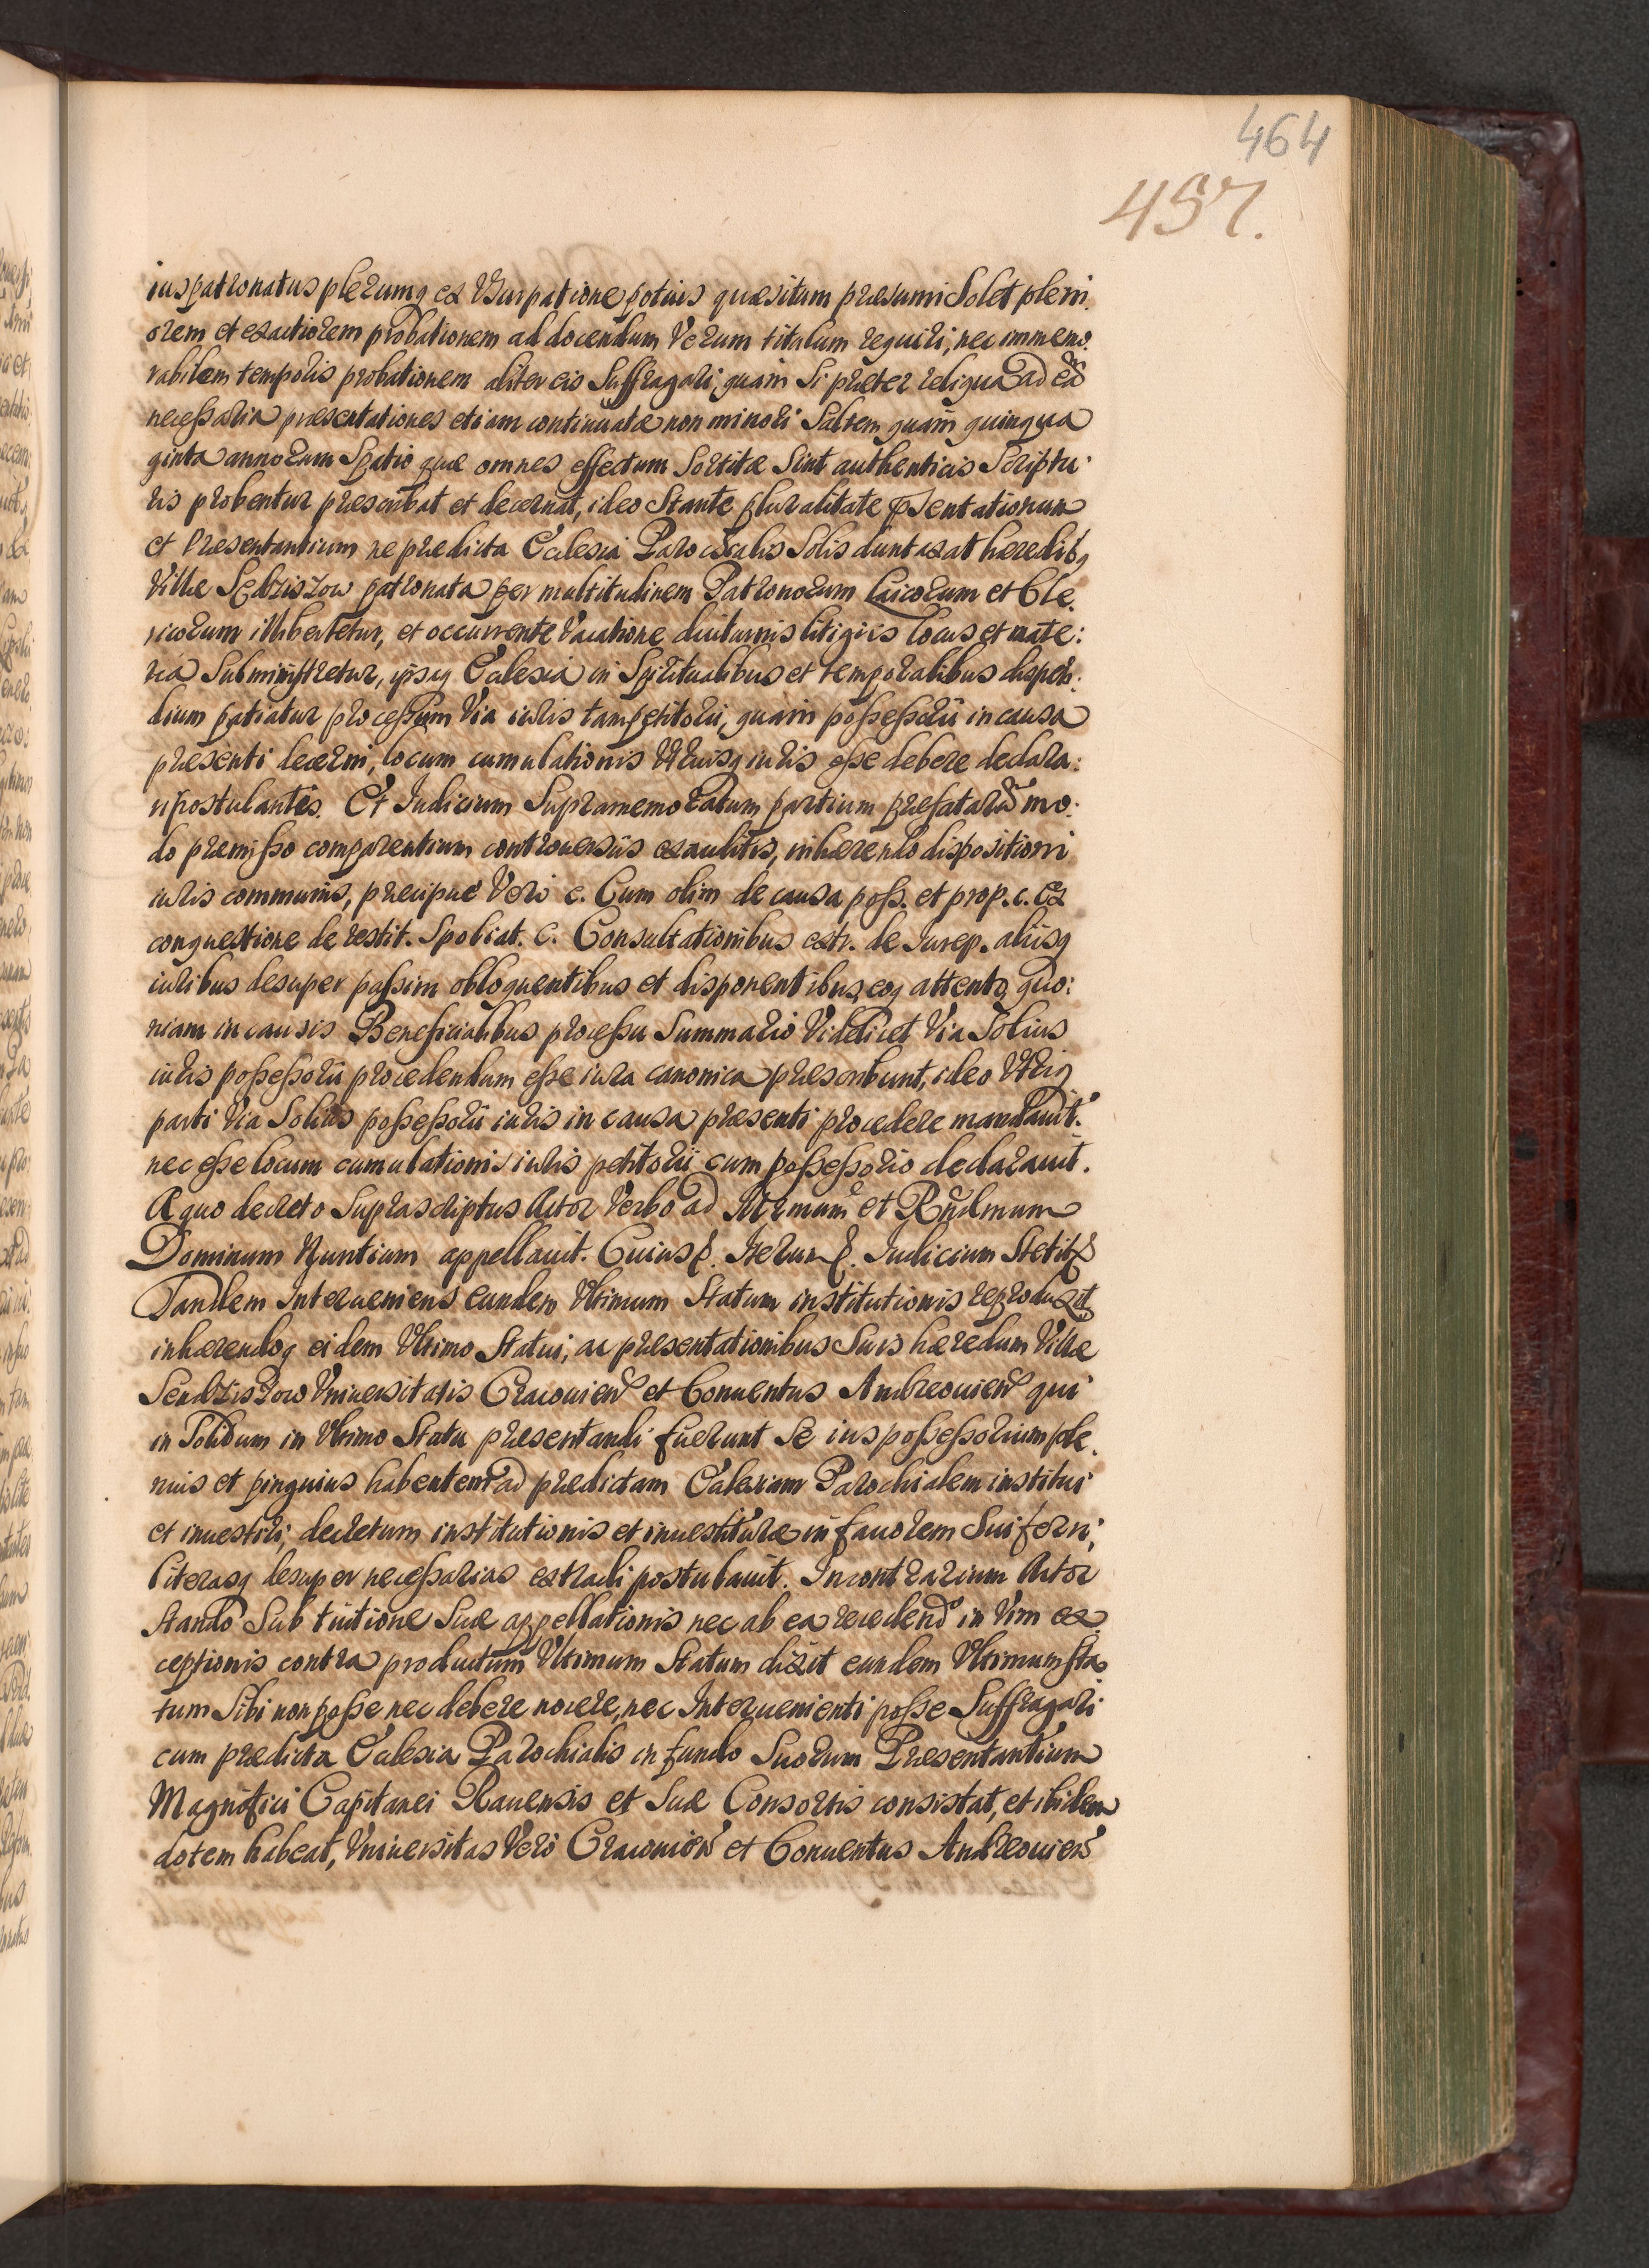 464
457.
iuspatronatus plerumq ex Vsurpatione potius quæsitum præsumi Solet pleni
orem et exactiorem probationem ad docendum Verum titulum requiri, nec immemo
rabilem temporis probationem aliter eis Suffragari, quam Si præter reliqua ad eã
necessaria præsentationes etiam continuatæ non minori Saltem quam quinqua
ginta annorum Spatio quæ omnes effectum Sortitæ Sint authenticis Scriptu
ris probentur præscribat et decernat, ideo Stante pluralitate pSentationum
et Præsentantium ne prædicta Ecclesia Parochialis Solis duntaxat hæredibq
Villæ Sędziszow patronata per multitudinem Patronorum Laicorum et Cle
ricorum illibertetur, et occurrente Vacatione diuturnis litigiis locus et mate:
ria Subministretur, ipsaq Ecclesia in Spiritualibus et temporalibus dispen:
dium patiatur processum Via iuris tam petitorii, quam possessorii in causa
præsenti decerni, locum cumulationis Vtriusq iuris esse debere declara:
ri postulantes. Et Iudicium Supramemoratum partium præfatarũ mo:
do præmisso comparentium controuersiis exauditis, inhærendo dispositioni
iuris communis, præcipue Vero c. Cum olim de causa poss. et prop. c. Ex
conquestione de restit. Spoliat. C. Consultationibus extr. de Iurep. aliisq
iuribus desuper passim obloquentibus et disponentibus, eoq attento, quo:
niam in causis Beneficialibus processu Summario Videlicet Via Solius
iuris possessorii procedendum esse iura canonica præscribunt, ideo Vtriq
parti Via Solius possessorii iuris in causa præsenti procedere mandauit.
nec esse locum cumulationis iuris petitorii cum possessorio declarauit.
A quo decreto Suprascriptus Actor Verbo ad Illrmum et Rñdmum
Dominum Nuntium appellauit. Cuius p. Iterum p. Iudicium Stetit p
Tandem Interueniens eundem Vltimum Statum institutionis reproduxit
inhærendoq eidem Vltimo Statui, ac præsentationibus Suis hæredum Villæ
Sendziszow Vniuersitatis Cracouień et Conuentus Andreouień qui
in Solidum in Vltimo Statu præsentandi fuerunt Se ius possessorium ple
nius et pinguius habentem ad prædictam Ecclesiam Parochialem institui
et inuestiri, decretum institutionis et inuestituræ in fauorem Sui ferri,
literasq desuper necessarias extradi postulauit. In contrarium Actor
Stando Sub tuitione Suæ appellationis nec ab ea recedendo in Vim ex
ceptionis contra productum Vltimum Statum dixit eundem Vltimum Sta
tum Sibi non posse nec debere nocere, nec Interuenienti posse Suffragari
cum prædicta Ecclesia Parochialis in fundo Suorum Præsentantium
Magnifici Capitanei Rauensis et Suæ Consortis consistat, et ibidem
dotem habeat, Vniuersitas Vero Cracouień et Conuentus Andreouień